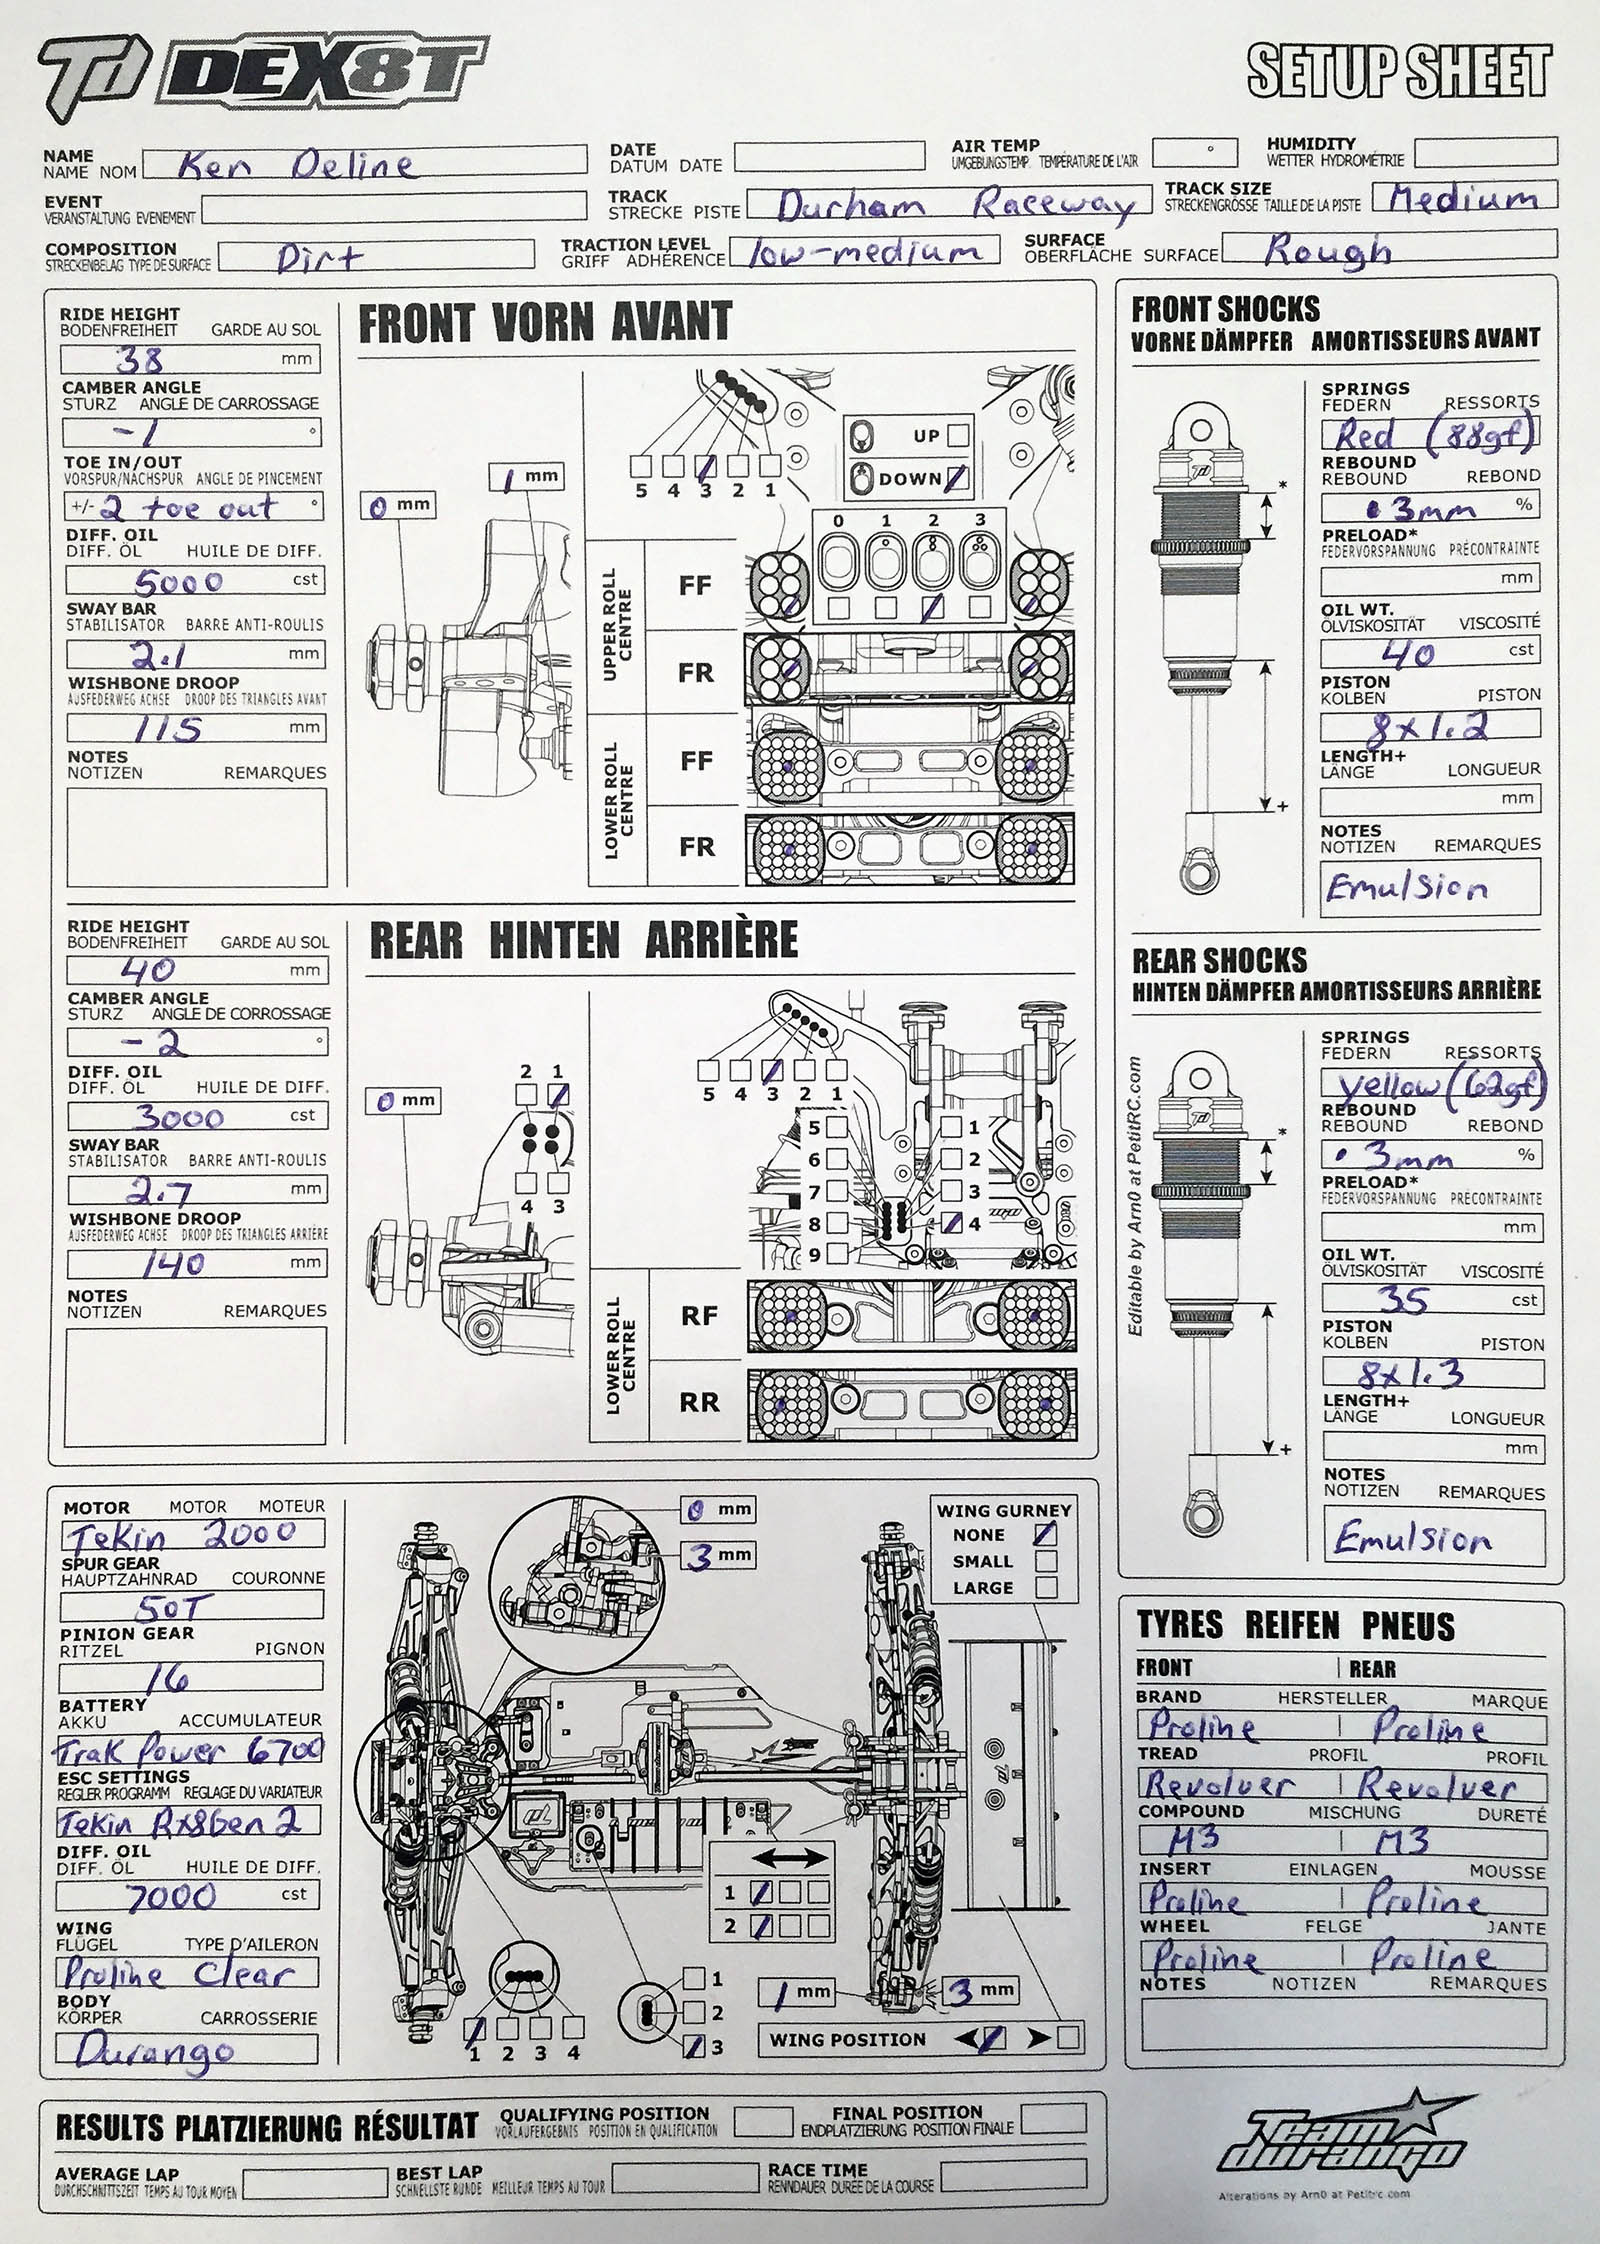 TD DEX8T SETUP SHEET
NAME Ken Deline DATE AIR TEMP ° HUMIDITY
NAME NOM DATUM DATE UMGEBUNGSTEMP. TEMPÉRATURE DE L'AIR WETTER HYDROMÉTRIE
EVENT TRACK Durham Raceway TRACK SIZE Medium
VERANSTALTUNG EVENEMENT STRECKE PISTE STRECKENGRÖSSE TAILLE DE LA PISTE
COMPOSITION Dirt TRACTION LEVEL low-medium SURFACE Rough
STRECKENBELAG TYPE DE SURFACE GRIFF ADHÉRENCE OBERFLÄCHE SURFACE
FRONT VORN AVANT
RIDE HEIGHT
BODENFREIHEIT GARDE AU SOL
38 mm
CAMBER ANGLE
STURZ ANGLE DE CARROSSAGE
-1 °
TOE IN/OUT
VORSPUR/NACHSPUR ANGLE DE PINCEMENT
+/- 2 toe out °
DIFF. OIL
DIFF. ÖL HUILE DE DIFF.
5000 cst
SWAY BAR
STABILISATOR BARRE ANTI-ROULIS
2.1 mm
WISHBONE DROOP
AUSFEDERWEG ACHSE DROOP DES TRIANGLES AVANT
115 mm
NOTES
NOTIZEN REMARQUES
0 mm
1 mm
5 4 3 2 1
UP
DOWN
0 1 2 3
UPPER ROLL CENTRE
FF
FR
LOWER ROLL CENTRE
FF
FR
REAR HINTEN ARRIÈRE
RIDE HEIGHT
BODENFREIHEIT GARDE AU SOL
40 mm
CAMBER ANGLE
STURZ ANGLE DE CORROSSAGE
-2 °
DIFF. OIL
DIFF. ÖL HUILE DE DIFF.
3000 cst
SWAY BAR
STABILISATOR BARRE ANTI-ROULIS
2.7 mm
WISHBONE DROOP
AUSFEDERWEG ACHSE DROOP DES TRIANGLES ARRIÈRE
140 mm
NOTES
NOTIZEN REMARQUES
0 mm
2 1
4 3
5 4 3 2 1
5 1
6 2
7 3
8 4
9
LOWER ROLL CENTRE
RF
RR
FRONT SHOCKS
VORNE DÄMPFER AMORTISSEURS AVANT
SPRINGS
FEDERN RESSORTS
Red (88gf)
REBOUND
REBOUND REBOND
.3mm %
PRELOAD*
FEDERVORSPANNUNG PRÉCONTRAINTE
mm
OIL WT.
ÖLVISKOSITÄT VISCOSITÉ
40 cst
PISTON
KOLBEN PISTON
8x1.2
LENGTH+
LÄNGE LONGUEUR
mm
NOTES
NOTIZEN REMARQUES
Emulsion
*
+
REAR SHOCKS
HINTEN DÄMPFER AMORTISSEURS ARRIÈRE
SPRINGS
FEDERN RESSORTS
yellow (62gf)
REBOUND
REBOUND REBOND
.3mm %
PRELOAD*
FEDERVORSPANNUNG PRÉCONTRAINTE
mm
OIL WT.
ÖLVISKOSITÄT VISCOSITÉ
35 cst
PISTON
KOLBEN PISTON
8x1.3
LENGTH+
LÄNGE LONGUEUR
mm
NOTES
NOTIZEN REMARQUES
Emulsion
*
+
Editable by Arn0 at PetitRC.com
MOTOR MOTOR MOTEUR
Tekin 2000
SPUR GEAR
HAUPTZAHNRAD COURONNE
50T
PINION GEAR
RITZEL PIGNON
16
BATTERY
AKKU ACCUMULATEUR
Trak Power 6700
ESC SETTINGS
REGLER PROGRAMM REGLAGE DU VARIATEUR
Tekin Rx8Gen 2
DIFF. OIL
DIFF. ÖL HUILE DE DIFF.
7000 cst
WING
FLÜGEL TYPE D'AILERON
Proline Clear
BODY
KÖRPER CARROSSERIE
Durango
0 mm
3 mm
WING GURNEY
NONE
SMALL
LARGE
1
2
1 2 3 4
1
2
3
1 mm
3 mm
WING POSITION
TYRES REIFEN PNEUS
FRONT | REAR
BRAND HERSTELLER MARQUE
Proline | Proline
TREAD PROFIL PROFIL
Revolver | Revolver
COMPOUND MISCHUNG DURETÉ
M3 | M3
INSERT EINLAGEN MOUSSE
Proline | Proline
WHEEL FELGE JANTE
Proline | Proline
NOTES NOTIZEN REMARQUES
RESULTS PLATZIERUNG RÉSULTAT QUALIFYING POSITION FINAL POSITION
VORLAUFERGEBNIS POSITION EN QUALIFICATION ENDPLATZIERUNG POSITION FINALE
AVERAGE LAP BEST LAP RACE TIME
DURCHSCHNITTSZEIT TEMPS AU TOUR MOYEN SCHNELLSTE RUNDE MEILLEUR TEMPS AU TOUR RENNDAUER DURÉE DE LA COURSE
Team durango
Alterations by Arn0 at Petitrc.com